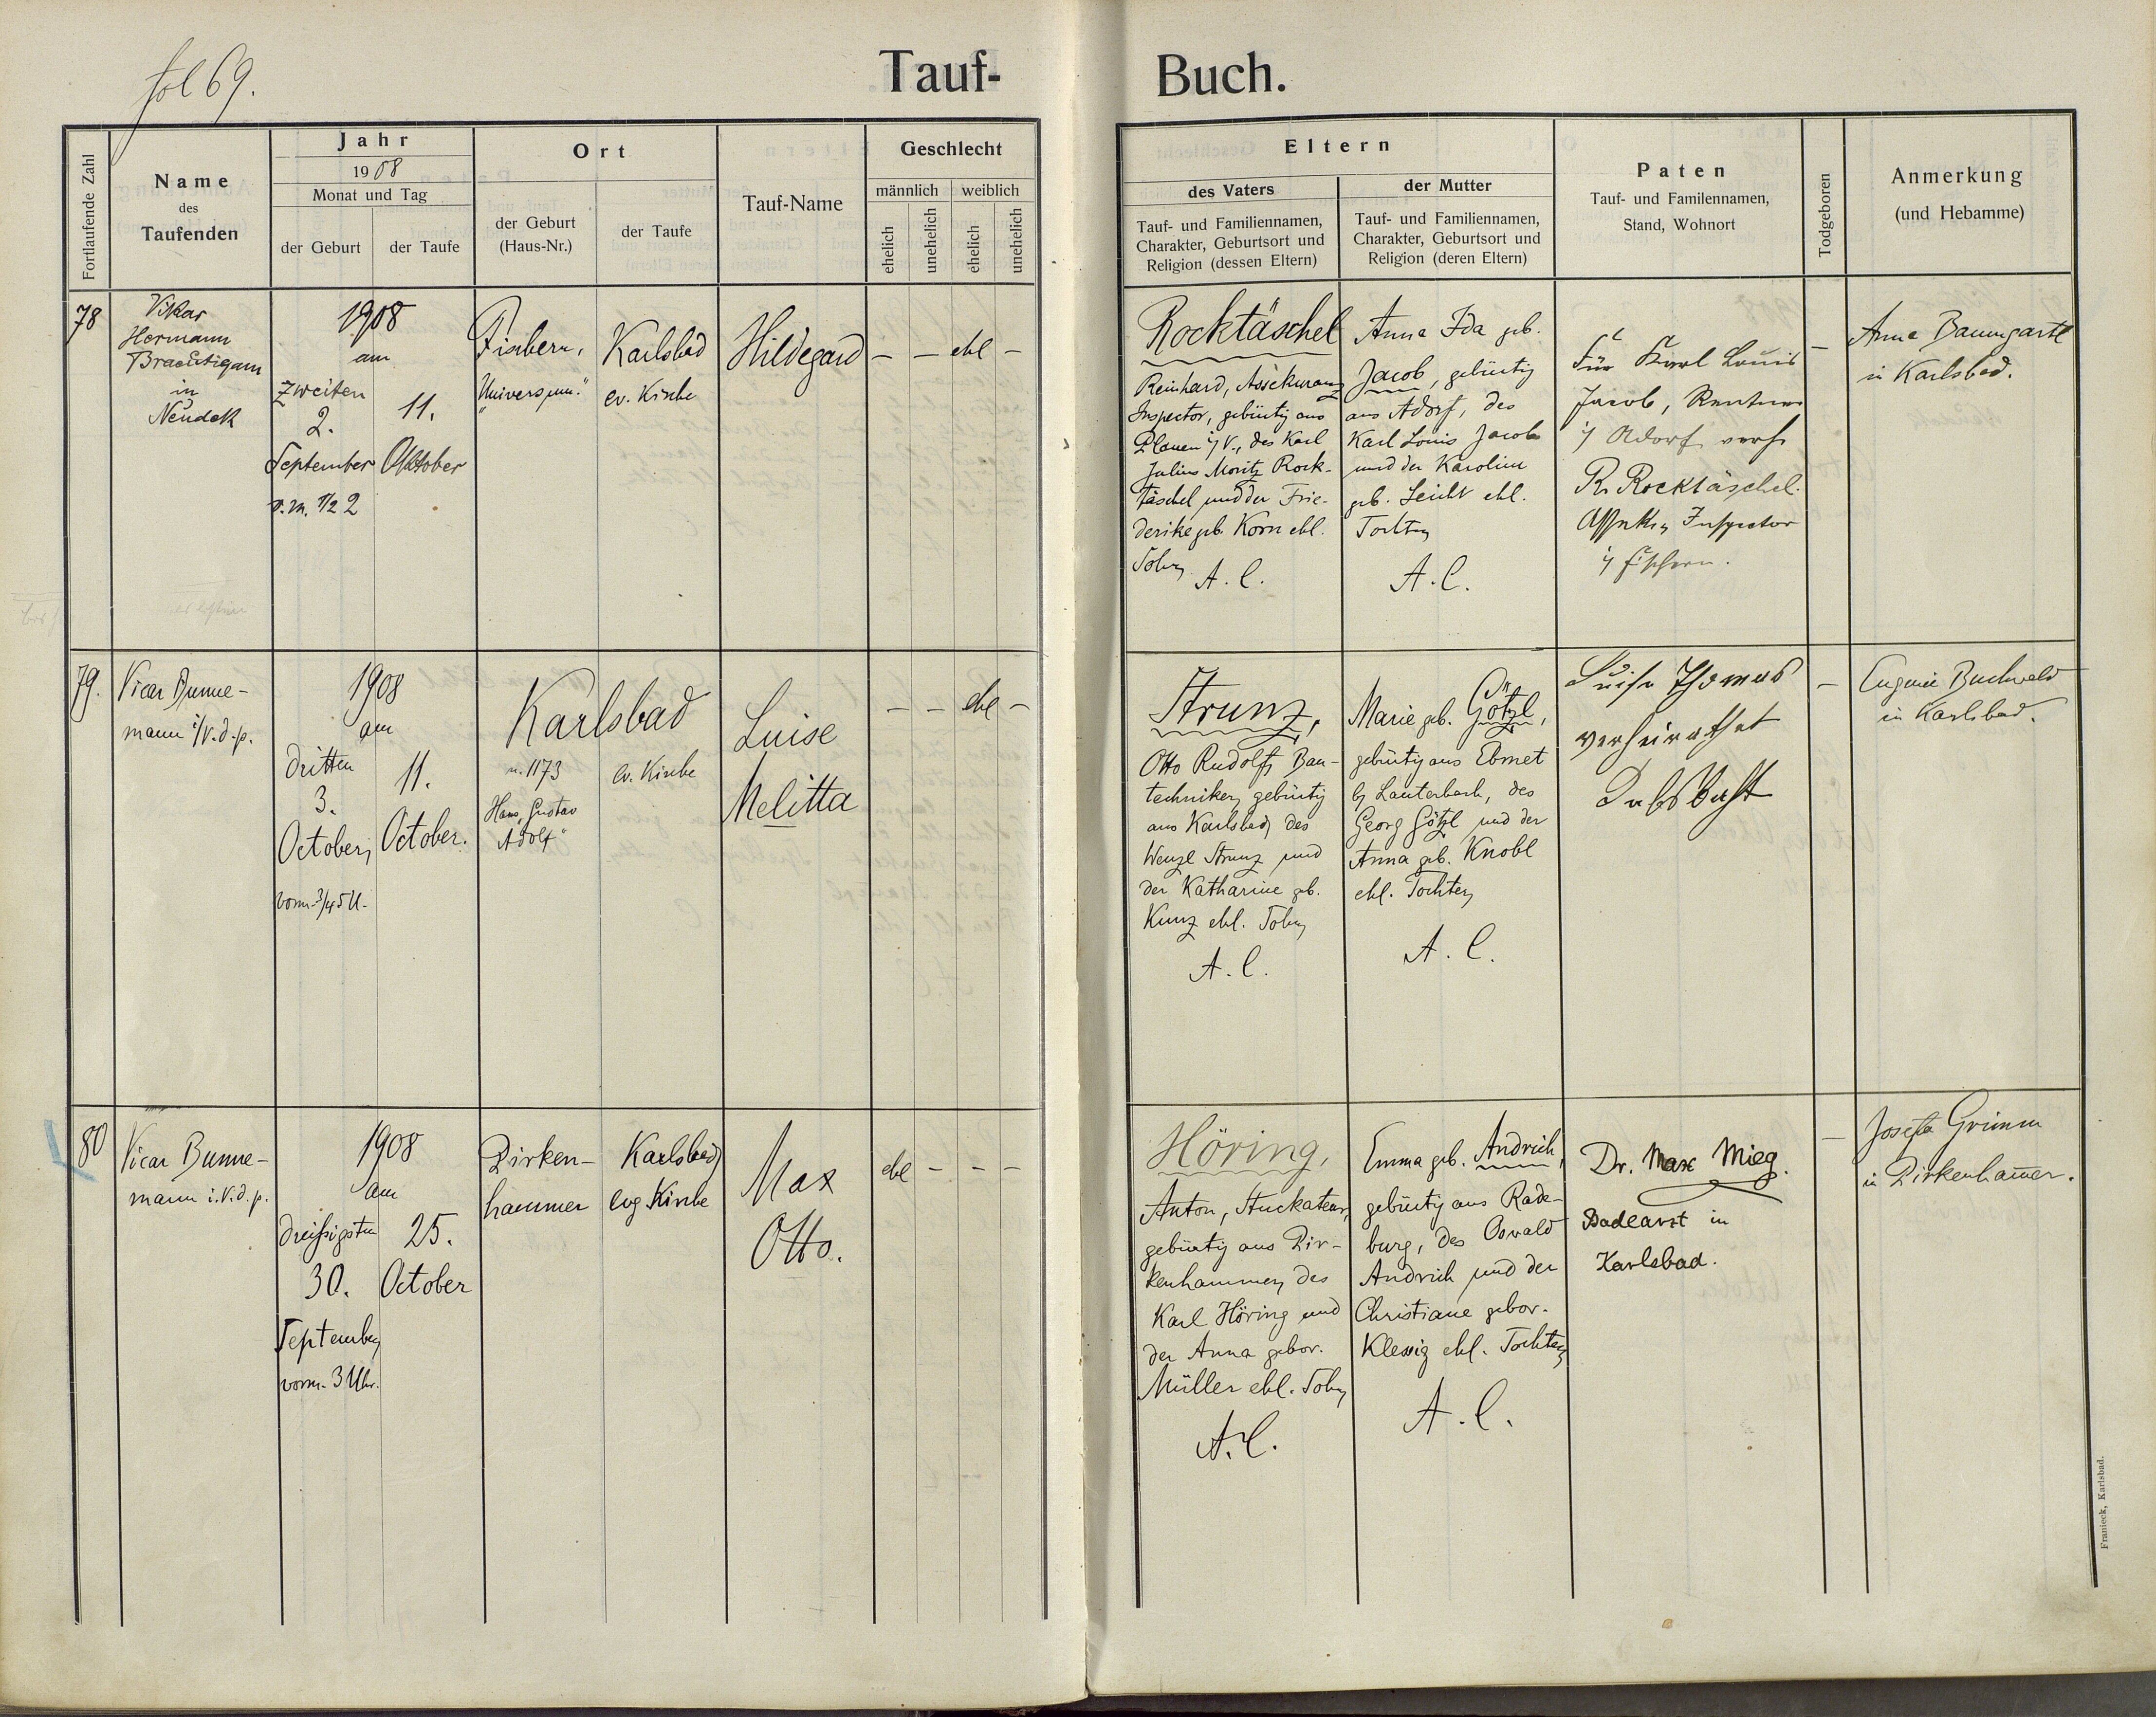 fol 69.
Tauf-Buch.
Fortlaufende Zahl
Name
des
Taufenden
Jahr
1908
Monat und Tag
der Geburt
der Taufe
Ort
der Geburt
(Haus-Nr.)
der Taufe
Tauf-Name
Geschlecht
männlich
weiblich
ehelich
unehelich
ehelich
unehelich
Eltern
des Vaters
Tauf- und Familiennamen,
Charakter, Geburtsort und
Religion (dessen Eltern)
der Mutter
Tauf- und Familiennamen,
Charakter, Geburtsort und
Religion (deren Eltern)
Paten
Tauf- und Familennamen,
Stand, Wohnort
Todgeboren
Anmerkung
(und Hebamme)
78
Vikar
Hermann
Braeutigam
in
Neudek
1908
am
zweiten
2.
September
v. m. 1/2 2
11.
Oktober
Fischern,
"Universum."
Karlsbad
ev. Kirche
Hildegard
— — ehl —
Rocktäschel
Reinhard, Assekuranz
Inspector, gebürtig aus
Plauen i/V., des Karl
Julius Moritz Rock-
täschel und der Frie-
derike geb. Korn ehl.
Sohn
A. C.
Anna Ida geb.
Jacob, gebürtig
aus Adorf, des
Karl Louis Jacob
und der Karoline
geb. Leicht ehl.
Tochter
A. C.
Für Karl Louis
Jacob, Rentner
i/ Adorf
R. Rocktäschel.
Inspector
i/ Fischern.
—
Anna Baumgartl
in Karlsbad.
79.
Vicar Bunne-
mann i/V. d. p.
1908
am
dritten
3.
October,
vorm. 3/4 5 U.
11.
October.
Karlsbad
n. 1173
Haus "Gustav
Adolf"
ev. Kirche
Luise
Melitta
— — ehl —
Strunz,
Otto Rudolf, Bau-
techniker, gebürtig
aus Karlsbad, des
Wenzl Strunz und
der Katharine geb.
Kunz ehl. Sohn
A. C.
Marie geb. Götzl,
gebürtig aus Ebmet
b/ Lauterbach, des
Georg Götzl und der
Anna geb. Knobl
ehl. Tochter
A. C.
Luise Thomas
verheirathet
—
Eugenie Buchwald
in Karlsbad.
80
Vicar Bunne-
mann i. V. d. p.
1908
am
dreißigsten
30.
September
vorm. 3 Uhr.
25.
October
Pirken-
hammer
Karlsbad
evg Kirche
Max
Otto.
ehl — — —
Höring,
Anton, Stuckateur,
gebürtig aus Pir-
kenhammer, des
Karl Höring und
der Anna gebor.
Müller ehl. Sohn
A. C.
Emma geb. Andrich,
gebürtig aus Rade-
burg, des Oswald
Andrich und der
Christiane gebor.
Klessig ehl. Tochter
A. C.
Dr. Max Mieg.
Badearzt in
Karlsbad.
—
Josefa Grimm
in Pirkenham̄er.
Franieck, Karlsbad.